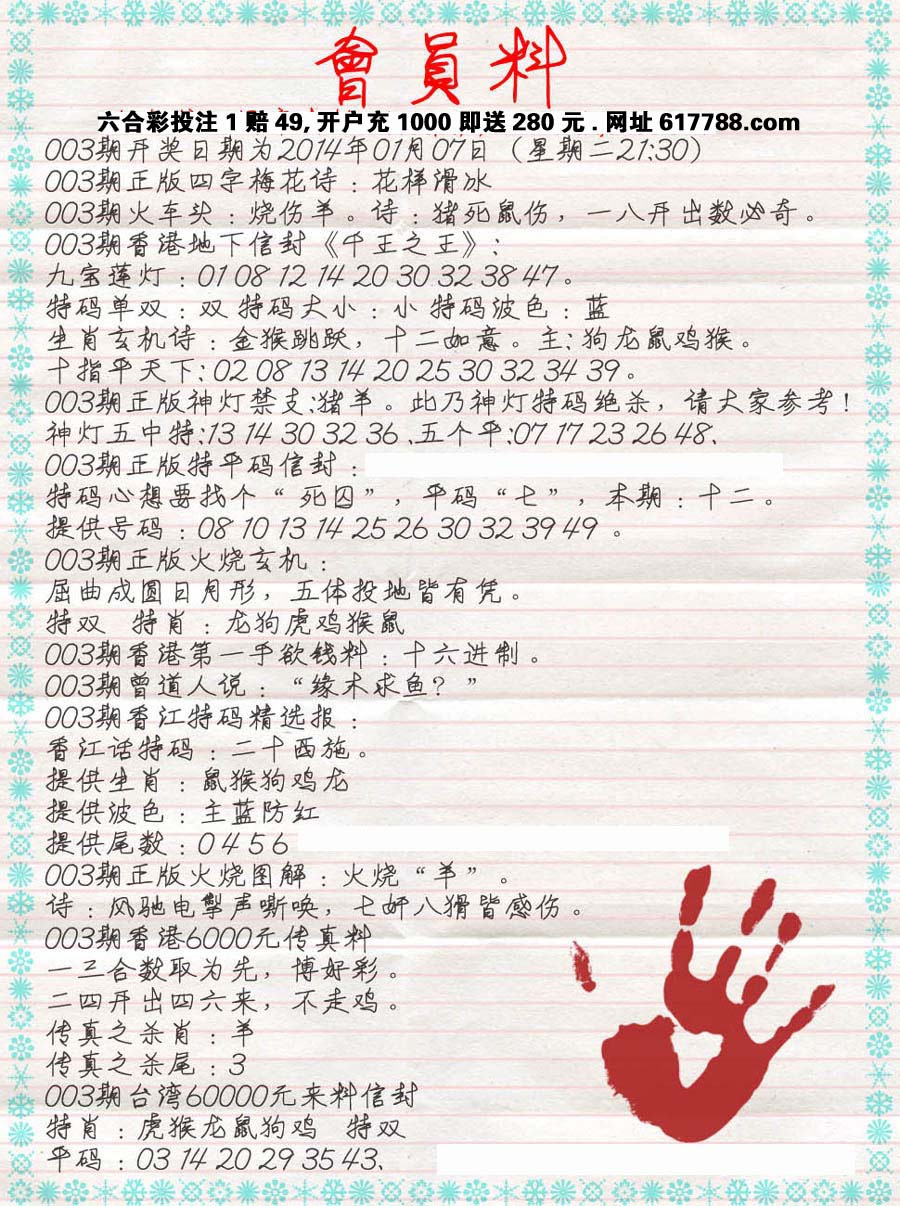 會員料
六合彩投注1赔49,开户充1000即送280元.网址617788.com
003期开奖日期为2014年01月07日（星期二21:30）
003期正版四字梅花诗：花样滑冰
003期火车头：烧伤羊。诗：猪死鼠伤，一八开出数必奇。
003期香港地下信封《千王之王》:
九宝莲灯：01 08 12 14 20 30 32 38 47。
特码单双：双 特码大小：小 特码波色：蓝
生肖玄机诗：金猴跳跃，十二如意。主:狗龙鼠鸡猴。
十指平天下:02 08 13 14 20 25 30 32 34 39。
003期正版神灯禁支:猪羊。此乃神灯特码绝杀，请大家参考！
神灯五中特:13 14 30 32 36、五个平:07 17 23 26 48、
003期正版特平码信封：
特码心想要找个“死囚”，平码“七”，本期：十二。
提供号码：08 10 13 14 25 26 30 32 39 49 。
003期正版火烧玄机：
屈曲成圆日月形，五体投地皆有凭。
特双 特肖：龙狗虎鸡猴鼠
003期香港第一手欲钱料：十六进制。
003期曾道人说：“缘木求鱼？”
003期香江特码精选报：
香江话特码：二十西施。
提供生肖：鼠猴狗鸡龙
提供波色：主蓝防红
提供尾数：0 4 5 6
003期正版火烧图解：火烧“羊”。
诗：风驰电掣声嘶唤，七奸八猾皆感伤。
003期香港6000元传真料
一三合数取为先，博好彩。
二四开出四六来，不走鸡。
传真之杀肖：羊
传真之杀尾：3
003期台湾60000元来料信封
特肖：虎猴龙鼠狗鸡 特双
平码：03 14 20 29 35 43、